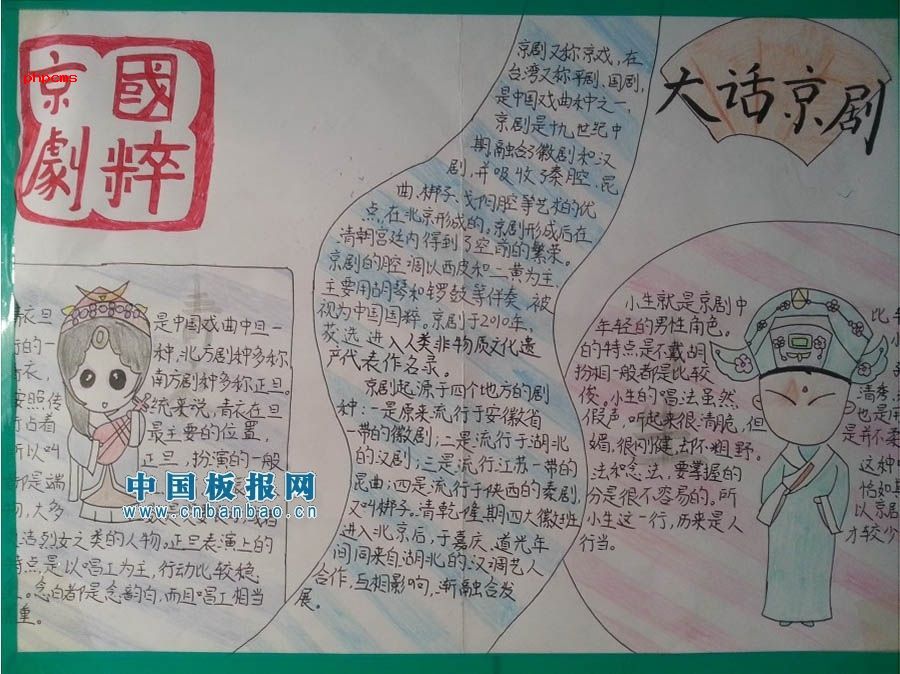 phpcms
國粹
京劇
大话京剧
京剧又称京戏，在
台湾又称平剧、国剧，
是中国戏曲种之一，
京剧是十九世纪中
期融合了徽剧和汉
剧，并吸收了秦腔、昆
曲、梆子、弋阳腔等艺术的优
点，在北京形成的。京剧形成后在
清朝宫廷内得到了空前的繁荣。
京剧的腔调以西皮和二黄为主，
主要用胡琴和锣鼓等伴奏，被
视为中国国粹。京剧于2010年，
获选进入人类非物质文化遗
产代表作名录。
京剧起源于四个地方的剧
种：一是原来流行于安徽省
一带的徽剧；二是流行于湖北
的汉剧；三是流行江苏一带的
昆曲；四是流行于陕西的秦剧，
又叫梆子。清乾隆期四大徽班
进入北京后，于嘉庆、道光年
间同来自湖北的汉调艺人
合作，互相影响，渐融合发
展。
青衣旦 是中国戏曲中旦一
行的一 种，北方剧种多称
青衣， 南方剧种多称正旦。
按照传 统来说，青衣在旦
行占着 最主要的位置，
所以叫 正旦，扮演的一般
都是端
物，大多
是贞洁烈女之类的人物。正旦表演上的
特点是以唱工为主，行动比较稳
重。念白都是念韵白，而且唱工相当
重。
小生就是京剧中 比
年轻的男性角色。
的特点是不戴胡
扮相一般都是比较 清秀、
俊。小生的唱法虽然 也是用
假声，听起来很清脆，但 是并不柔
媚，很刚健，却不粗野， 这种唱
法和念法，要掌握的 恰如其
分是很不容易的。所 以京剧
小生这一行，历来是人 才较少
行当。
中国板报网
www.cnbanbao.cn